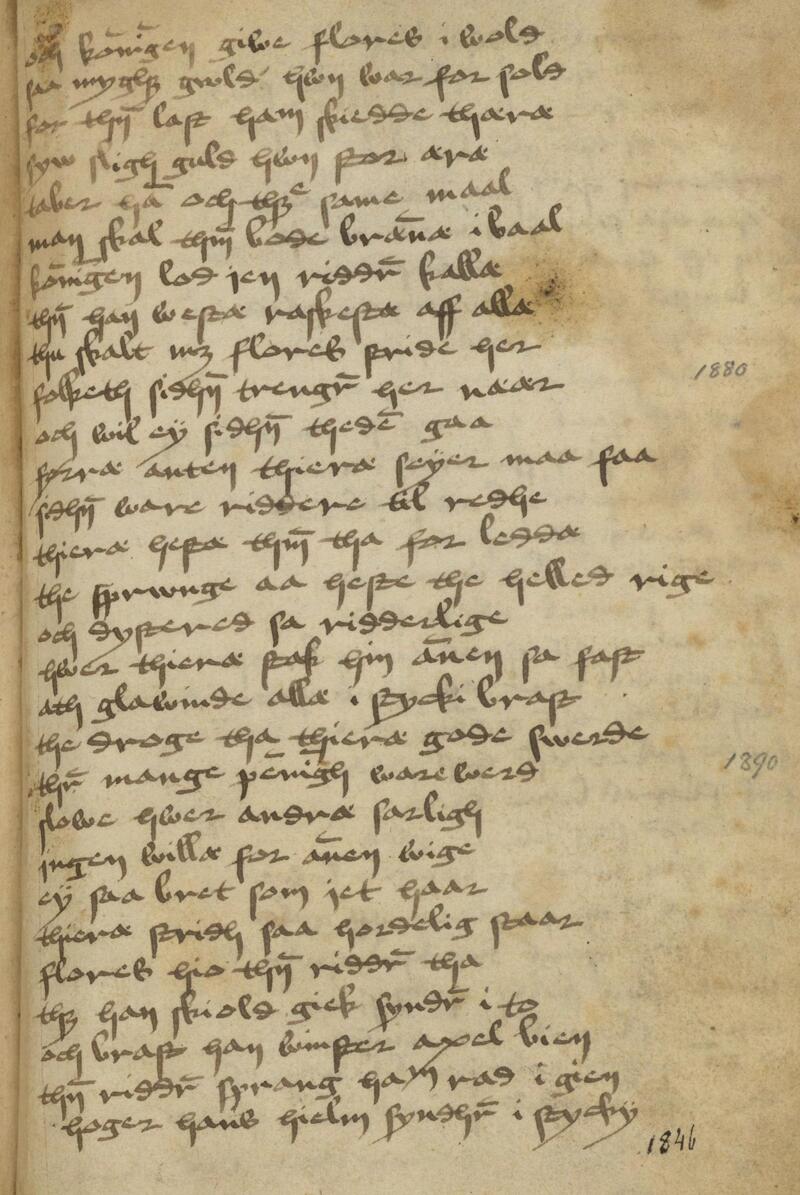 och kōnīgen giwe flores i wold
saa myghz gwld hwn war for sold
for thn̄ last ham skiedde thæræ
syw sligh guld hwn stor æræ
taber hā och thze same maal
man skal thm̄ bode brān̄æ i baal
kōnīgen lod jen riddr̄ kallæ
thn̄ han westæ raskestæ aff allæ
thu skalt mz flores stride her
folketh sidhn̄ trengr̄ her nær
och wil ey sidhn̄ thedē gaa
førræ anten thieræ seyer maa faa
sidhn̄ ware riddere til redhe
thieræ hestæ thm̄ tha for leddæ
the sprwnge aa heste the helled rige
och dystered sa ridderlige
hwer thieræ stak hin ān̄en sa fast
ath glawinde allæ i stycki brast
the droge tha thieræ gode swerde
thr̄ mange pēnigh ware werd
slowe hwer andræ sarligh
ingen willæ for ān̄en wige
ey saa bret som jet haar
thieræ stridh saa hordelig staar
flores hio thn̄ riddr̄ tha
thz han skiold giek syndr̄ i to
och brast han winster axel bien
thn̄ riddr̄ sprang ham rad i gien
hoger hans hielm syndhr̄ i stycky
1880
1890
1846